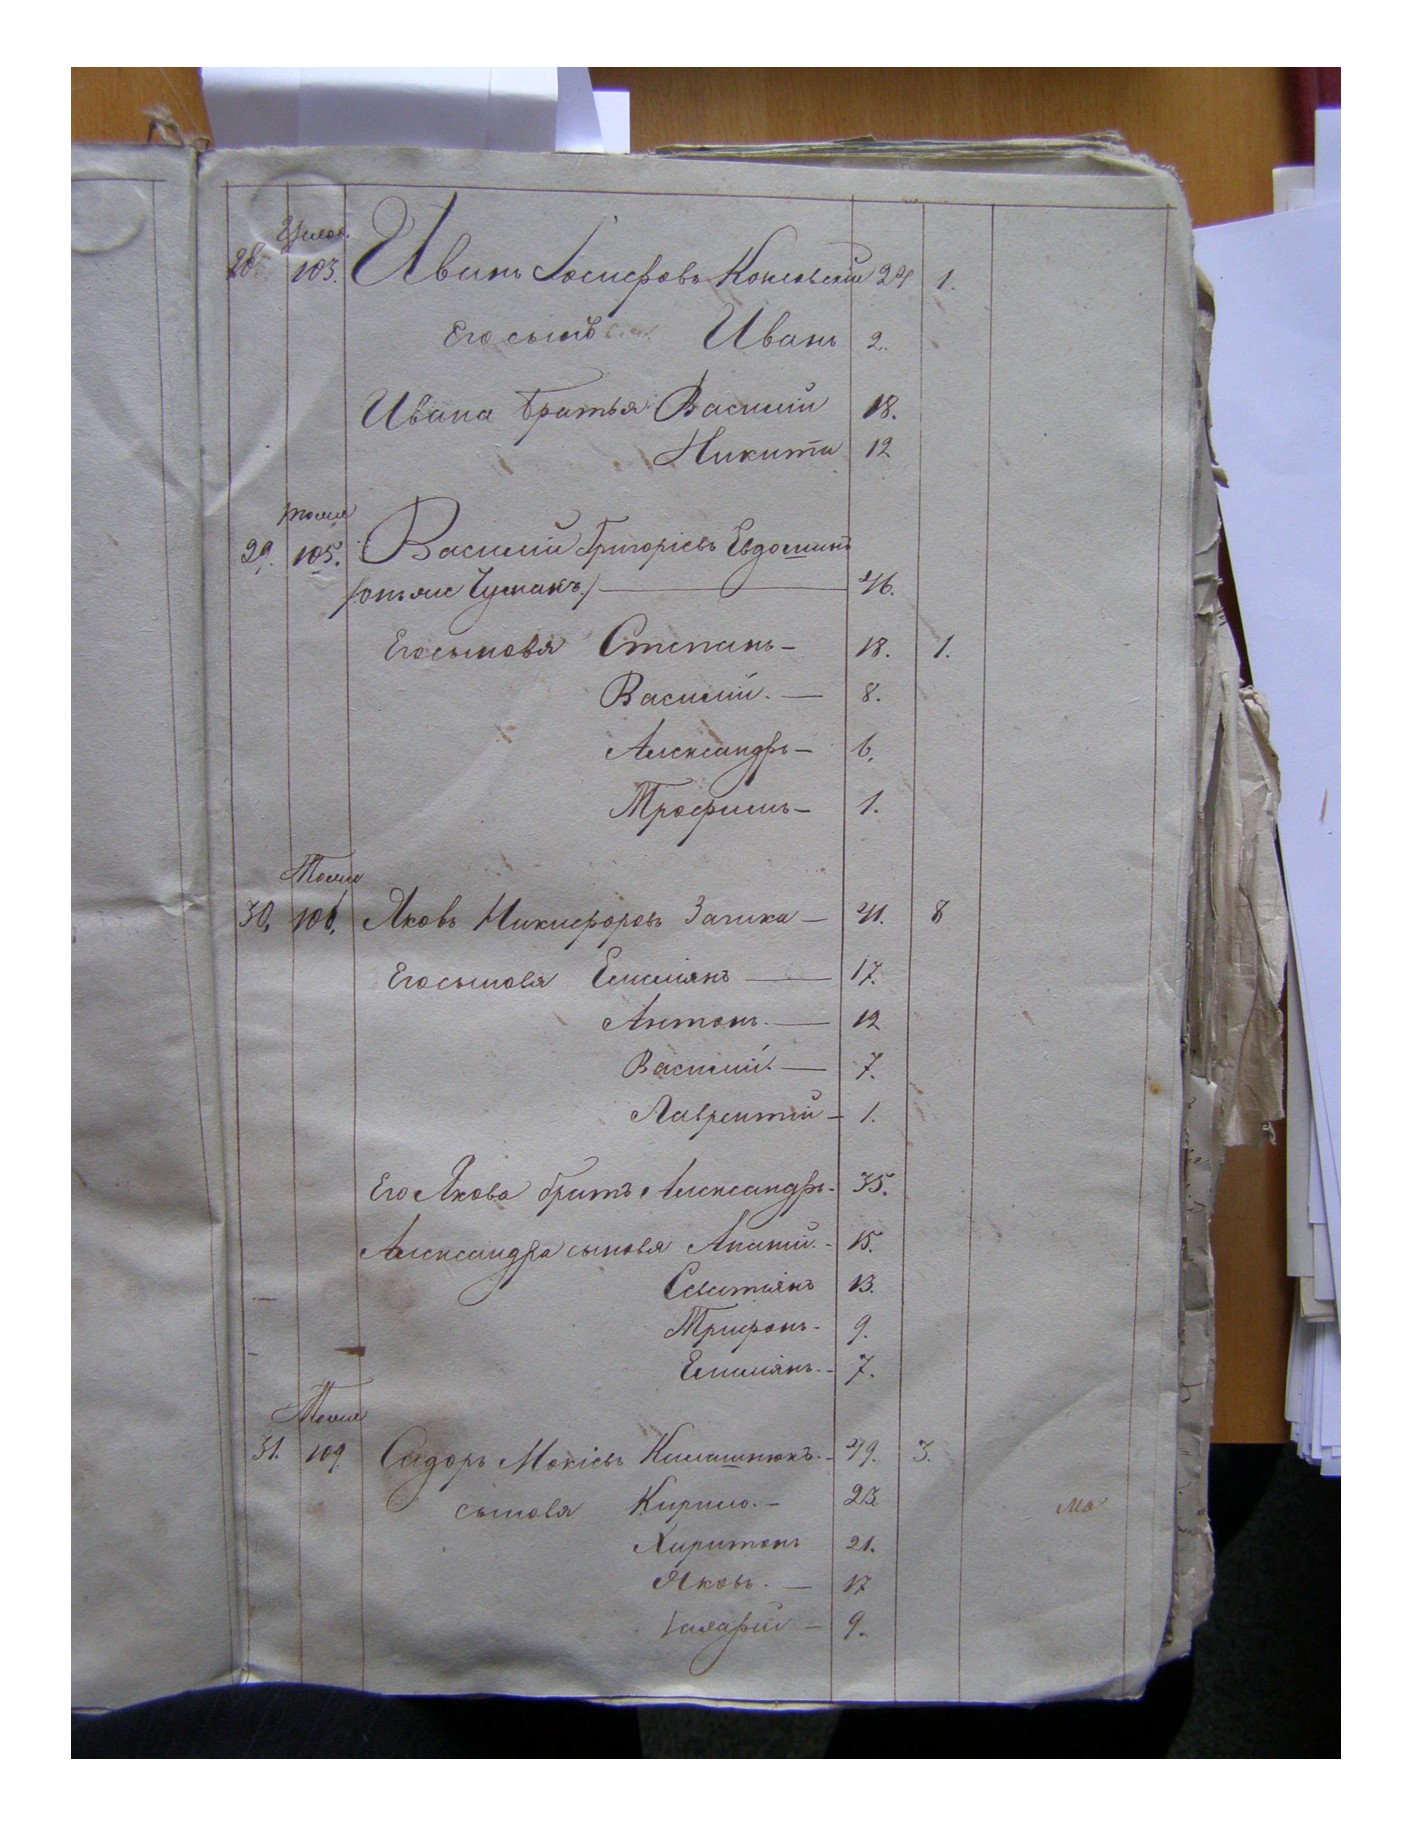 28. 103. Иванъ Іосифовъ 24 1.
Его сынъ Иванъ 2.
Ивана братья Василій 18.
Никита 12
29. 105. Василій Григоріевъ Евдошинъ
Чумакъ 46.
Его сыновья Степанъ – 18. 1.
Василій. — 8.
Александръ – 6.
Трофимъ – 1.
30. 106. Яковъ Никифоровъ Заика – 41. 8
Его сыновья Емилiянъ — 17.
Антонъ. — 12
Василій. — 7.
Лаврентій – 1.
Его Якова братъ Александръ – 35.
Александра сыновья 15.
13.
Трифонъ – 9.
Емилiянъ. – 7.
31. 109. Сидоръ Мокіевъ – 49. 3.
сыновья Кирило. – 23.
Харитонъ 21.
Яковъ. – 17
– 9.